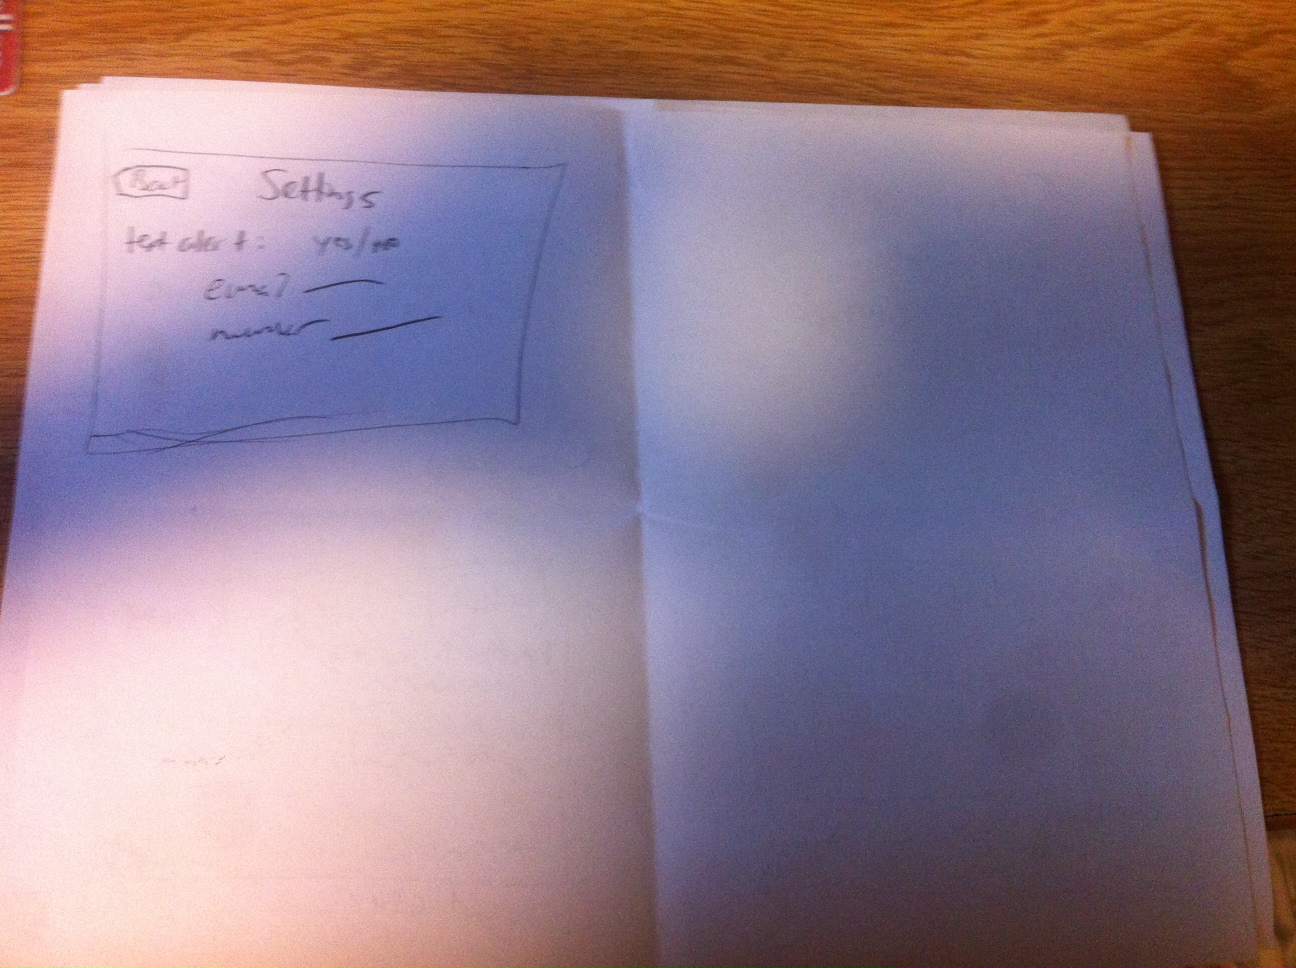 Back Settings
text alert: yes/no
email
number